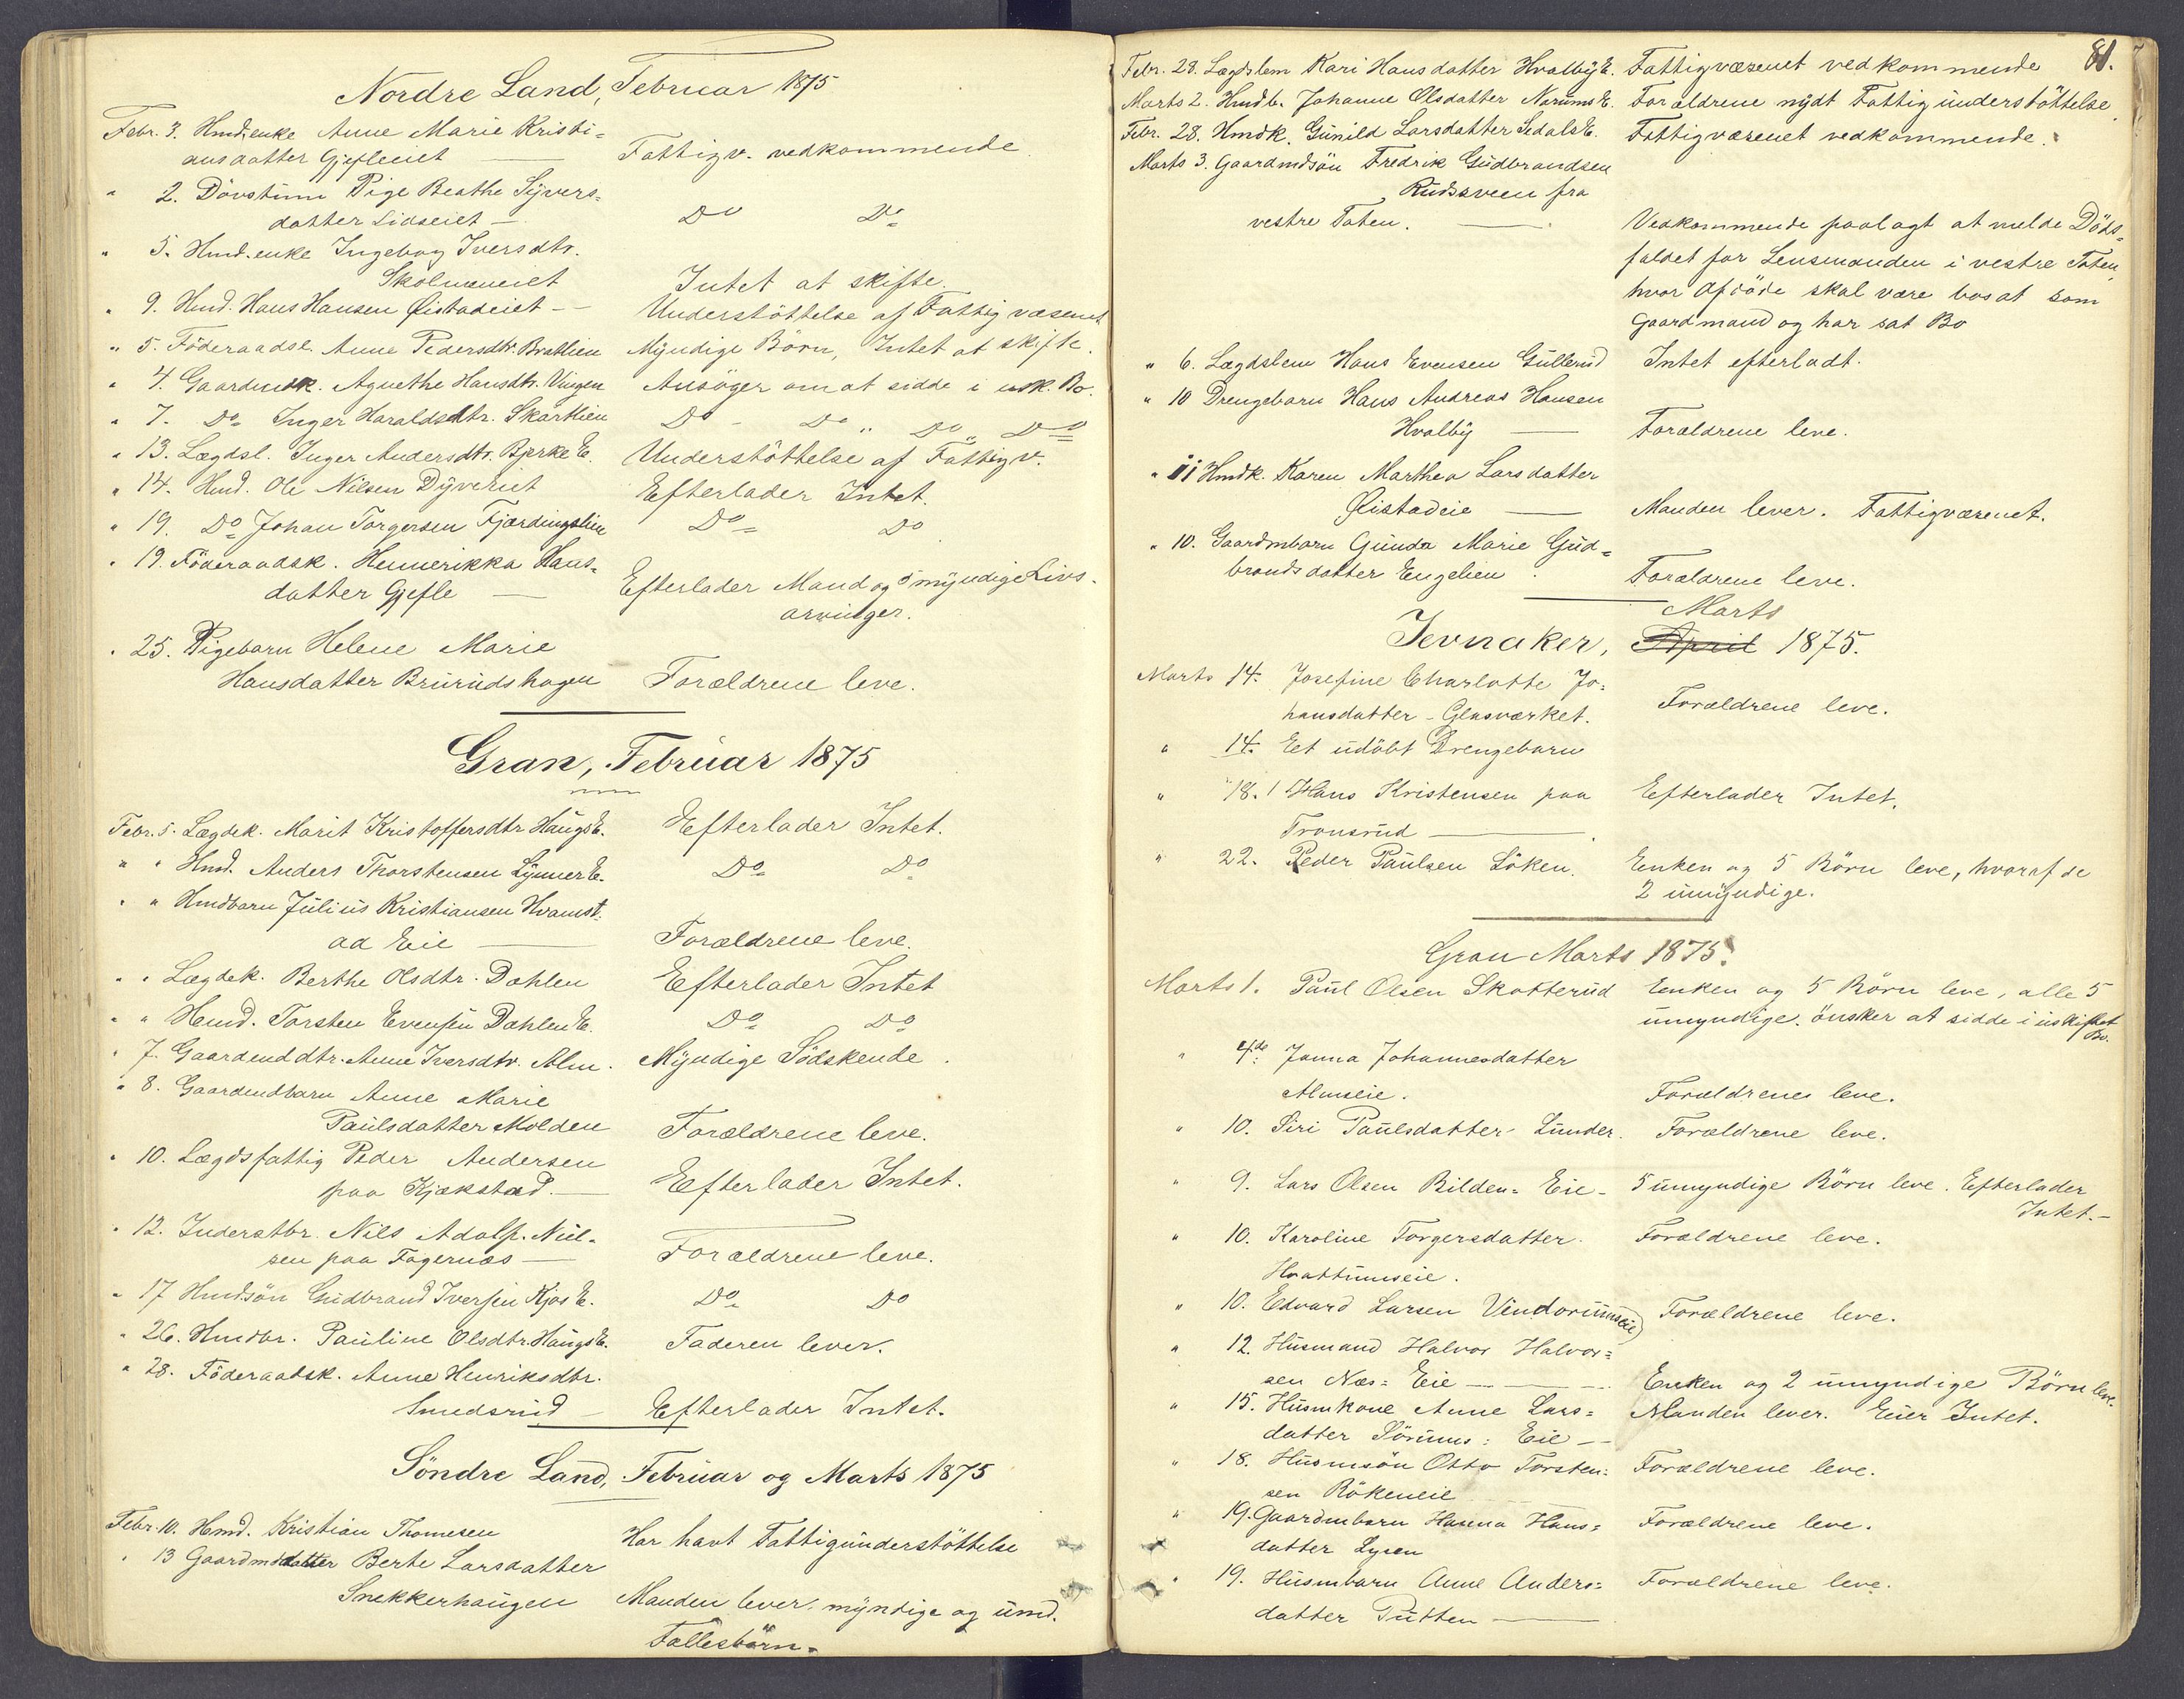 Nordre Land, Februar 1875
Febr. 3. Hmd.enke Anne Marie Kristi=
ansdatter Gjefleeiet — Fattigv. vedkommende
" 2. Dövstum Pige Beathe Syvers=
datter Lidseiet — Do Do
" 5. Hmd.enke Ingebog Iversdtr.
Skolmeneiet Intet at skifte.
" 9. Hmd. Hans Hansen Øistadeiet — Understöttelse af Fattigvæsenet
" 5. Föderaadse. Anne Pedersdtr. Bratlien Myndige Börn, Intet at skifte.
" 4. Gaardmdk. Agnethe Hansdtr. Vingen Ansöger om at sidde i usk. Bo.
" 7. Do Inger Haraldsdtr. Skartlien Do - Do " Do " Do
" 13. Lægdsl. Inger Andersdtr. Bjerke E. Understöttelse af Fattigv.
" 14. Hmd. Ole Nilsen Dyveeiet Efterlader Intet.
" 19. Do Johan Torgersen Fjærdingslien Do Do
" 19. Föderaadsk. Hennerikka Hans=
datter Gjefle — Efterlader Mand og 5 myndige Livs-
arvinger.
" 25. Pigebarn Helene Marie
Hansdatter Brurudshagen Forældrene leve.
Gran, Februar 1875
Febr. 5. Lægdek. Marit Kristoffersdtr Haugs E. Efterlader Intet.
" " Hmd. Anders Thorstensen Lynner E. Do Do
" " Hmdbarn Julius Kristiansen Hvamst=
ad Eie — Forældrene leve.
" " Lægdek. Berthe Olsdtr. Dahlen Efterlader Intet
" " Hmd. Torsten Evensen Dahlen E. Do Do
" 7. Gaardmddtr. Anne Iversdtr. Alm. Myndige Södskende.
" 8. Gaardmdbarn Anne Marie
Paulsdatter Molden Forældrene leve.
" 10. Lægdsfattig Peder Andersen
paa Kjækstad. — Efterlader Intet.
" 12. Inderstbr. Nils Adolf. Niel=
sen paa Fagernæs — Forældrene leve.
" 17 Hmdsön Gudbrand Iversen Kjos E. Do Do
" 26. Hmdbr. Pauline Olsdtr. Haugs E. Faderen lever.
" 28. Föderaadsk. Anne Henriksdtr.
Smedsrud — Efterlader Intet.
Söndre Land, Februar og Marts 1875
Febr. 10. Hmd. Kristian Thomesen Har havt Fattigunderstöttelse
" 13 Gaardmdsdatter Berte Larsdatter
Snekkerhaugen Manden lever, myndige og umd.
Fællesbörn.
81.
Febr. 28. Lægdslem Kari Hansdatter Hvalby E. Fattigvæsenet vedkommende
Marts 2. Hmdb. Johanne Olsdatter Narums E. Forældrene nydt Fattigunderstöttelse.
Febr. 28. Hmdk. Gunild Larsdatter Sedals E. Fattigvæsenet vedkommende.
Marts 3. Gaardmdsön Fredrik Gudbrandsen
Rudssveen fra
vestre Toten. — Vedkommende paalagt at melde Döds=
faldet for Lensmanden i vestre Toten
hvor Afdöde skal være bosat som
Gaardmand og har sat Bo
" 6. Lægdslem Hans Evensen Gullerud Intet efterladt.
" 10 Drengebarn Hans Andreas Hansen
Hvalby — Forældrene leve.
" 11 Hmdk. Karen Marthea Larsdatter
Øistadeie — Manden lever. Fattigvæsenet.
" 10. Gaardmbarn Gunda Marie Gud=
brandsdatter Engelien. Forældrene leve.
Marts
Jevnaker, April 1875.
Marts 14. Josefine Charlotte Jo=
hansdatter - Glasværket. Forældrene leve.
" 14. Eet udöbt Drengebarn
" 18. Hans Kristensen paa Efterlader Intet.
Transrud —
" 22. Peder Paulsen Löken. Enken og 5 Börn leve, hvoraf de
2 umyndige.
Gran Marts 1875.
Marts 1. Paul Olsen Skatterud Enken og 5 Börn leve, alle 5
umyndige. önsker at sidde i uskiftet
Bo.
" 4de Janna Johannesdatter
Almseie. Forældrenes leve.
" 10. Siri Paulsdatter Lunder. Forældrene leve.
" 9. Lars Olsen Bilden= Eie - 5 umyndige Börn leve. Efterlader
Intet.-
" 10. Karoline Torgersdatter. Forældrene leve.
Hvattumseie.
" 10. Edvard Larsen Vindorumseie Forældrene leve.
" 12. Husmand Halvor Halvor=
sen Næs= Eie — Enken og 2 umyndige Börn leve.
" 15. Husmkone Anne Lars= Manden lever. Eier Intet.
datter Sörums= Eie —
" 18. Husmsön Otto Torsten= Forældrene leve.
sen Rökeneie
" 19. Gaardmbarn Hanna Hans= Forældrene leve.
datter Lysen
" 19. Husmbarn Anne Anders= Forældrene leve.
datter Putten —